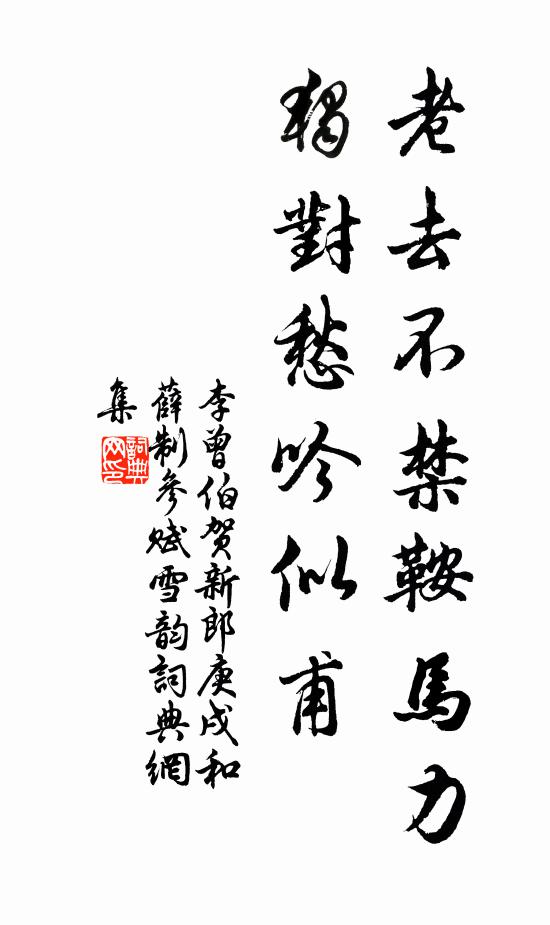 老去不禁鞍馬力
獨對愁吟似甫
李曾伯賀新郎庚戌和
薛制參賦雪韵詞典網
集
詞典
网印